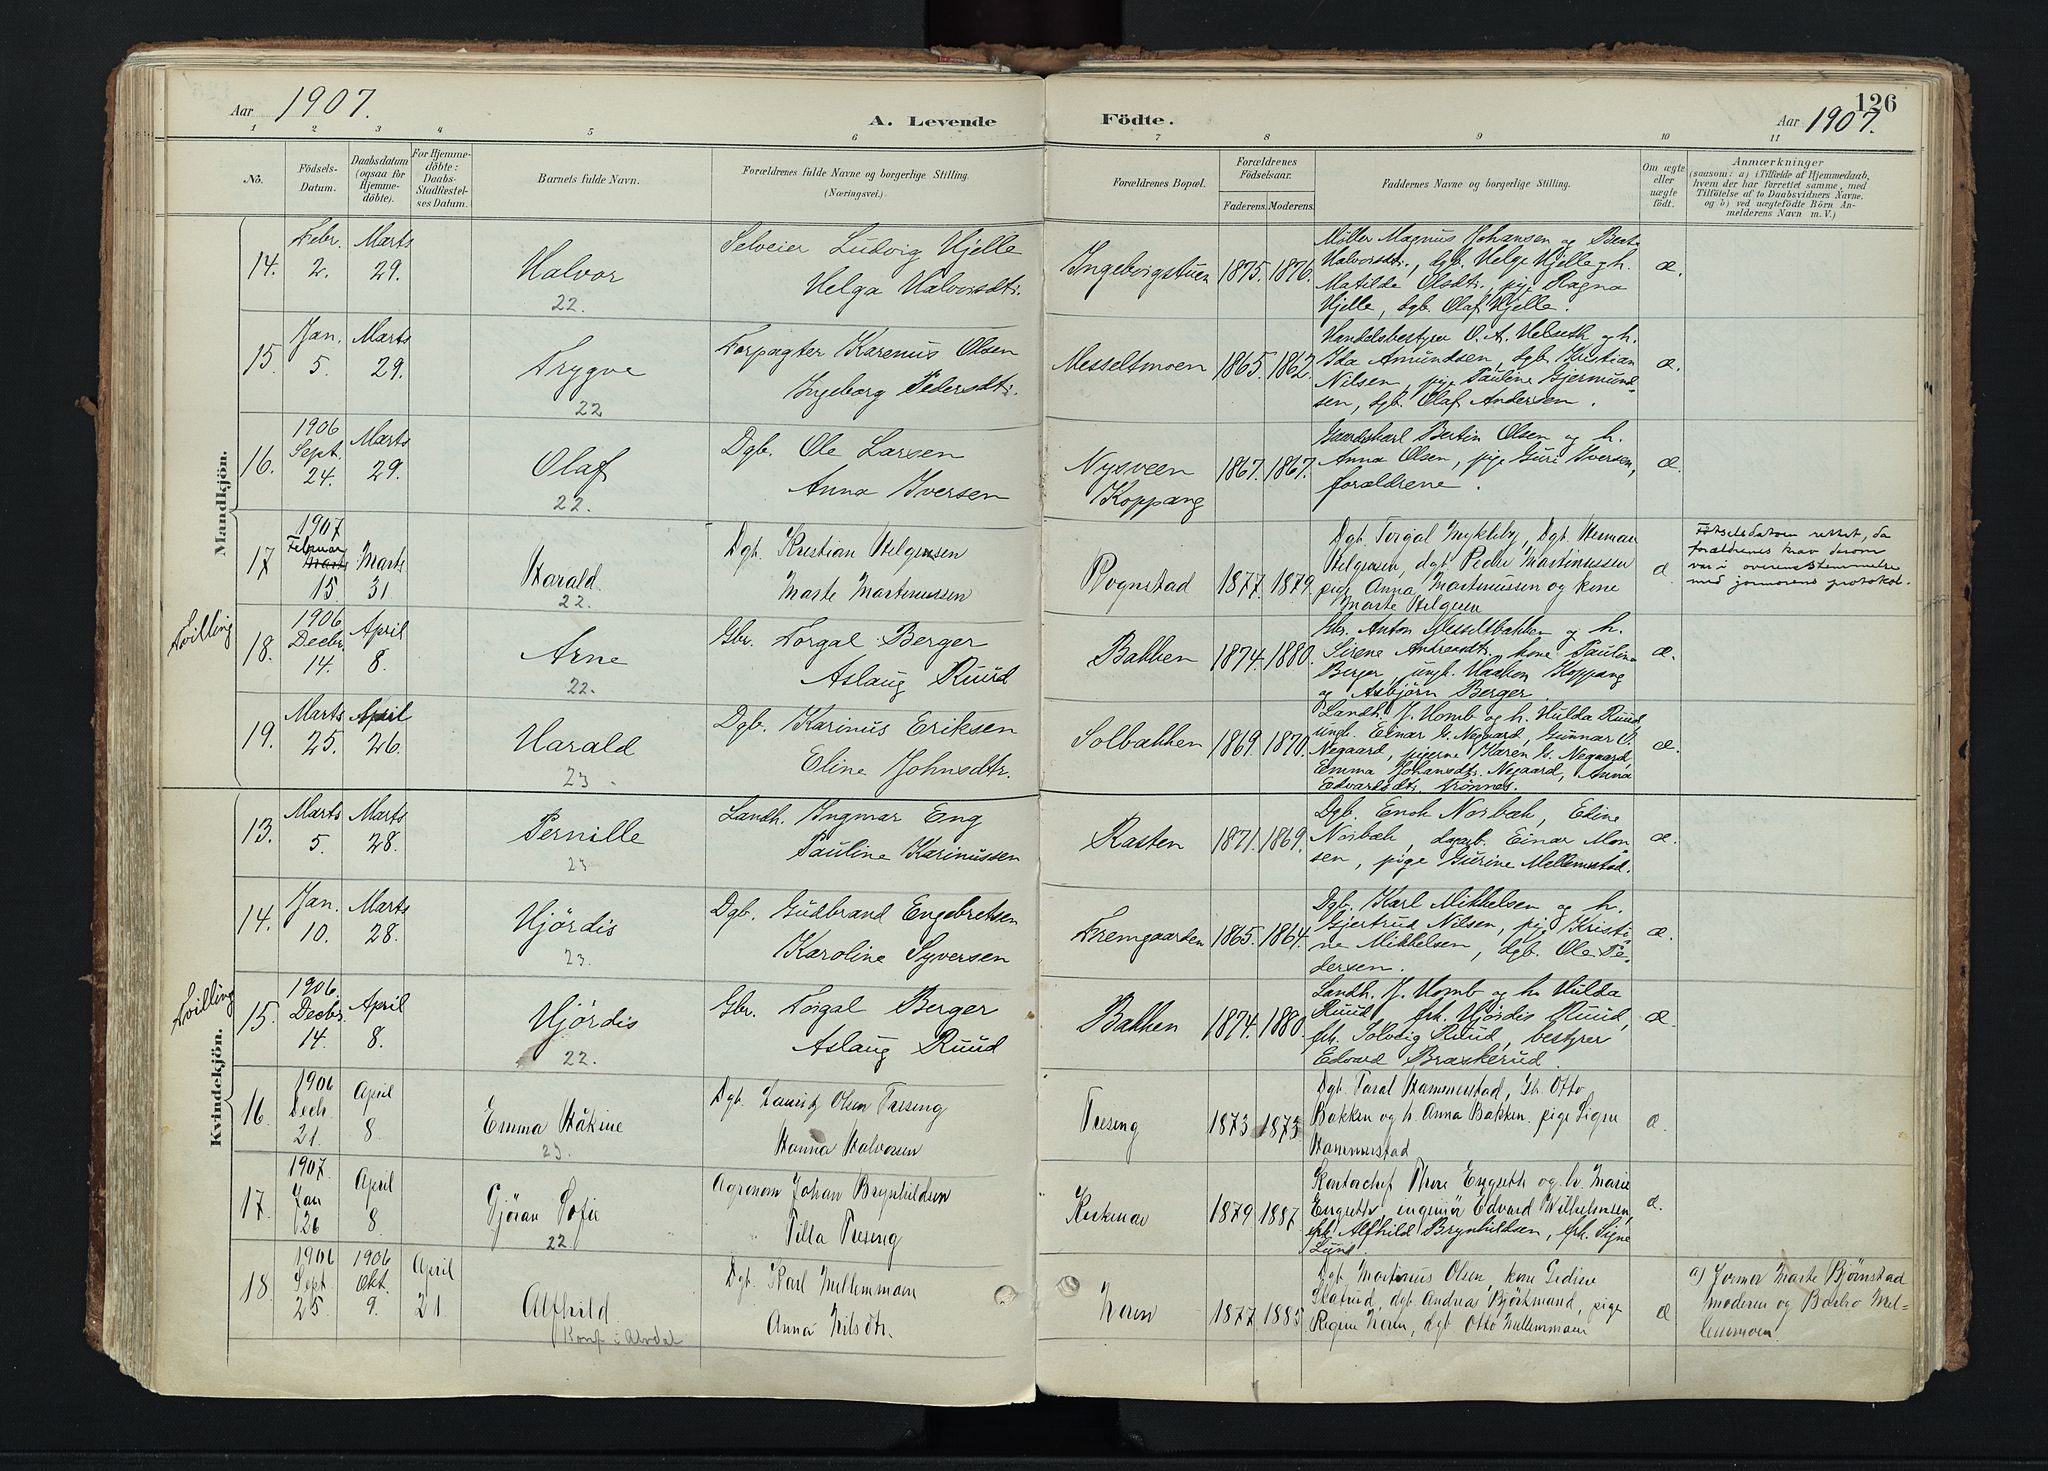 Aar 1907.
A. Levende Födte.
126
Aar 1907.
1 2 3 4 5 6 7 8 9 10 11
No.
Födsels-Datum.
Daabsdatum (ogsaa for Hjemme-döbte).
For Hjemme-döbte: Daabs-Stadfæstel-ses Datum.
Barnets fulde Navn.
Forældrenes fulde Navne og borgerlige Stilling. (Næringsvei.)
Forældrenes Bopæl.
Forældrenes Födselsaar.
Faderens. Moderens.
Faddernes Navne og borgerlige Stilling.
Om ægte eller uægte födt.
Anmærkninger
(saasom: a) i Tilfælde af Hjemmedaab, hvem der har forrettet samme, med Tilföielse af to Daabsvidners Navne. og b) ved uægtefödte Börn An-melderens Navn m. V.)
Mandkjön.
14. Febr. 2. Marts 29.
Halvor
22.
Selveier Ludvig Hjelle
Helga Halvorsdtr.
Ingeborgstuen 1875. 1876.
Møller Magnus Johansen og Bert
Halvorsdtr., dgb. Helge Hjelle og h.
Matilde Olsdtr., pige Ragna
Hjelle, dgb. Olaf Hjelle.
æ.
15. Jan. 5. Marts 29.
Trygve
22
Forpagter Karenus Olsen
Ingeborg Pedersdtr.
Messeltmoen 1865. 1862.
Handelsbestyrer O. A. Helseth og h.
Ida Amundsen, dgb. Kristian
Nilsen, pige Pauline Gjermund-
sen, dgb. Olaf Andersen.
æ.
16. 1906 Sept. 24. Marts 29.
Olaf
22.
Dgb. Ole Larsen
Anna Iversen
Nysveen
Koppang
1867. 1867.
Gaardskarl Bertin Olsen og h.
Anna Olsen, pige Guri Iversen,
forældrene.
æ.
17 1907 Februar Marts 15. Marts 31
Harald.
22.
Dgb. Kristian Helgesen
Marte Martinussen
Rognstad 1877. 1879.
Dgb. Torgal Mykleby, Dgb. Herman
Helgesen, dgb. Peder Martinussen
pige Anna Martinussen og kone
Marte Helgesen
æ.
Fødselsdatoen rettet, da
forældrenes krav derom
var i overensstemmelse
med jormorens protokol.
Tvilling
18. 1906 Decbr. 14. April 8.
Arne
22.
Gbr. Torgal Berger
Aslaug Ruud
Bakken 1874. 1880.
Gbr. Anton Messeltbakken og h.
Sirene Andreasdtr., kone Pauline
Berger, ungk. Haakon Koppang
og Asbjörn Berger.
æ.
19. Marts 25. April 26.
Harald
23
Dgb. Karinus Eriksen
Eline Johnsdtr.
Solbakken 1869. 1870.
Landh. J. Homb og h. Hulda Ruud,
ungk. Einar G. Negaard, Gunnar O.
Negaard, pigerne Karen G. Negaard,
Emma Johansdtr. Negaard, Anna
Edvardsdtr. Trönnes.
æ.
Kvindekjön.
13. Marts 5. Marts 28.
Pernille
23
Landh. Ingmar Eng
Pauline Karinussen
Rasten 1871. 1869.
Dgb. Enok Norbæk, Eline
Norbæk, dgarb. Einar Mon-
sen, pige Gurine Mellemstad.
æ.
14. Jan. 10. Marts 28.
Hjördis
23.
Dgb. Gudbrand Engebretsen
Karoline Syversen
Fremgaarden 1865. 1864.
Dgb. Karl Mikkelsen og h.
Gjertrud Nilsen, pige Kristi-
ne Mikkelsen, dgb. Ole Pe-
dersen.
æ.
Tvilling
15. 1906. Decbr. 14. April 8.
Hjördis
22.
Gbr. Torgal Berger
Aslaug Ruud
Bakken 1874. 1880.
Landh. J. Homb og h. Hulda
Ruud, frk. Hjördis Ruud,
frk. Solveig Ruud, bestyrer
Edvard Braskerud.
æ.
16. 1906 Dech. 21. April 8.
Emma Håkine
23.
Dgb. Lauritz Olsen Treseng
Hanna Halvorsen
Treseng 1873 1873
Dgb. Taral Hammerstad, Gb. Otto
Bakken og h. Anna Bakken. pige Signe
Hammerstad
æ.
17. 1907. Jan 26 April 8
Gjöran Sofie
22
Agronom Johan Brynhildsen
Tilla Treseng
1879 1887
Kontorchef Thore Engseth og h. Marie
Engseth, ingeniör Edvard Wilhelmsen,
frk. Alfhild Brynhildsen, frk. Signe
Lund.
æ.
18. 1906 Sept 25 1906 Okt. 9. April 21
Alfhild
Konf. i Alvdal
Dgb. Karl Mellemmoen
Anna Nilsdtr.
Koren 1877. 1885
Dgb. Martinus Olsen, kone Gedine
Slatrud, dgb. Andreas Björkmand, pige
Regine Koren, dgb. Otto Mellemmoen
æ
a) Jormor Marte Bjørnstad
moderen og Barbo Mel-
lemmoen.